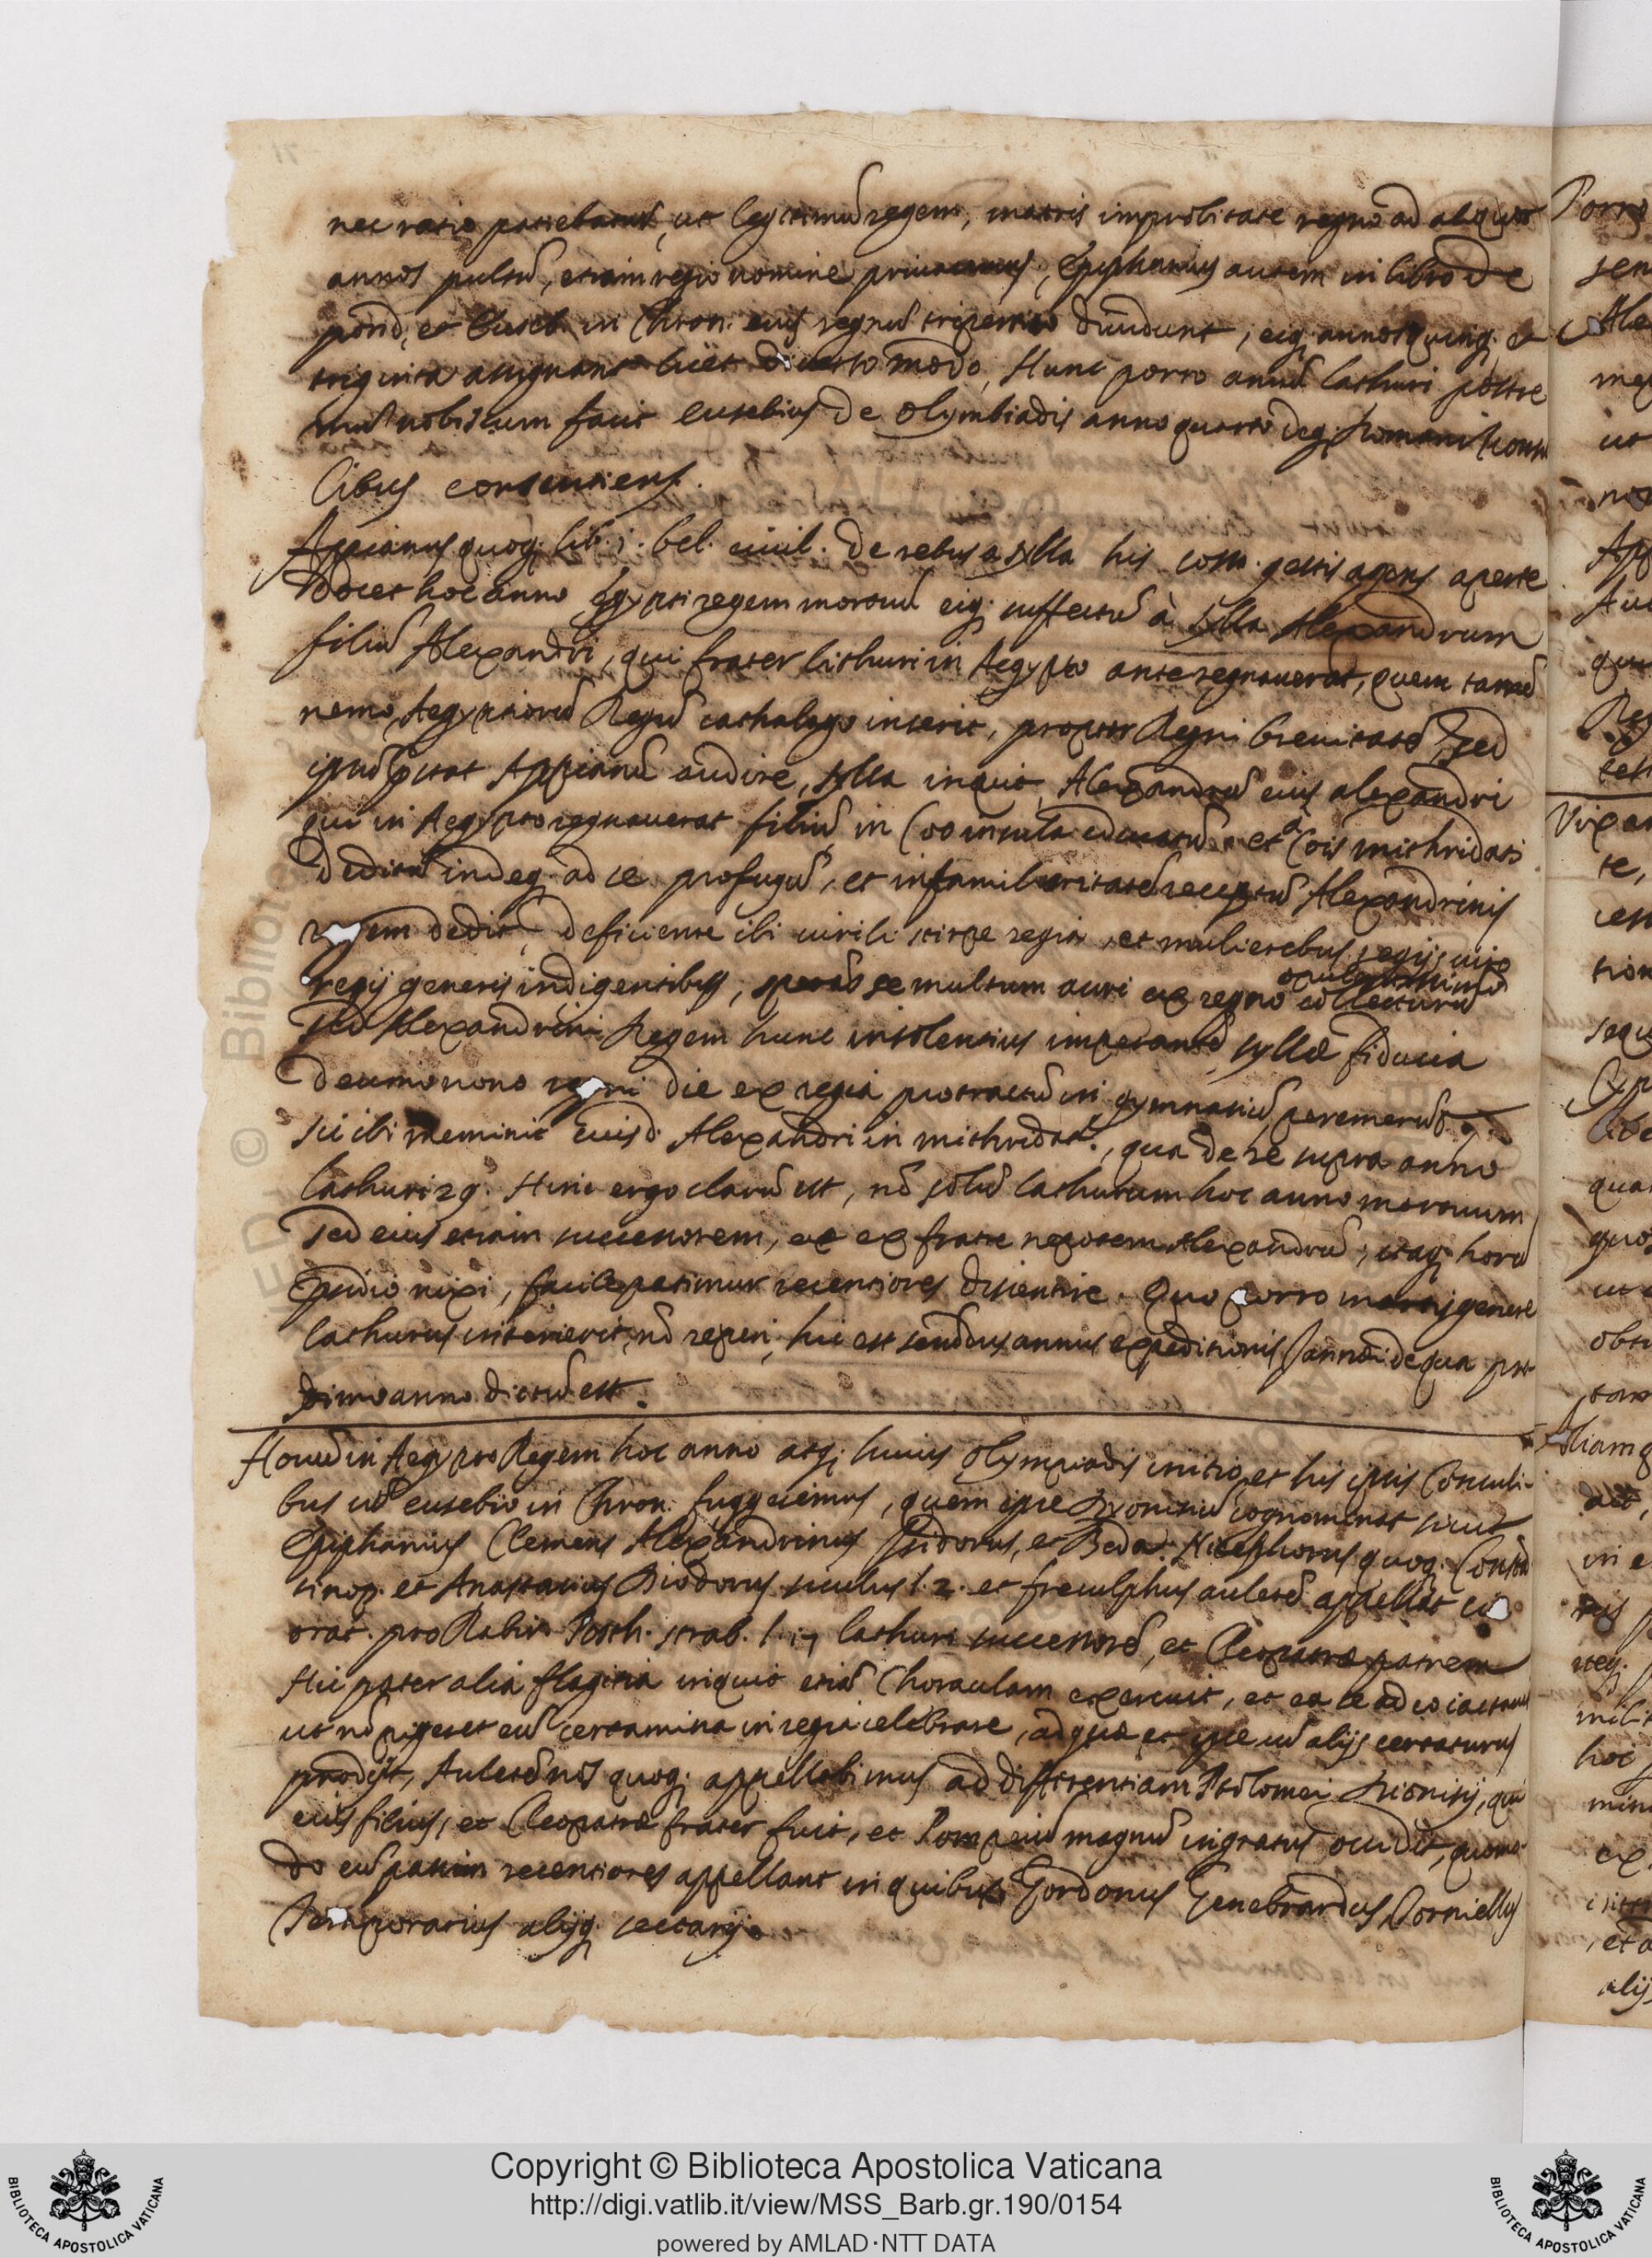 nec ratio patiebatur, ut legitimũ regem, matris improbitate regno ad aliquot
annos pulsũ, etiam regio nomine privaremus, Epiphanius autem in libro de
pond. et Euseb. in Chron. eius regnũ tripertito diuidunt, eiq; annos quinq; et
triginta assignant licet diuerso modo, Hunc porro annũ Lathuri postre
mũ nobiscum facit eusebius de olymbiadis anno quarto deq; Romanis Consu
libus consentiens.
Appianus quoq; lib. j. bel. ciuil. de rebus a sylla his coss. gestis agens aperte
docet hoc anno Egypti regem mortuũ eiq; suffectũ à sylla Alexandrum
filiũ Alexandri, qui frater Lathuri in Aegypto ante regnauerat, quem tamẽ
nemo Aegyptiorũ Regũ cathalogo inserit, propter Regni breuitatẽ, sed
ipsũ Appianũ audire, sylla inquit, Alexandrũ eius alexandri
qui in Aegypto regnauerat filiũ in Coo insula educatũ et a Cois mithridati
deditũ indeq; ad se profugũ, et in familiaritatẽ receptũ Alexandrinis
regem dedit, deficiente ibi uirili stirpe regia, et mulieribus regijs uiro
regij generis indigentibus, sperãs se multum auri ex regno opulentissimo collecturũ
sed Alexandrini Regem hunc insolentius imperantẽ syllæ fiducia
decimonono regni die ex regia protractũ in gymnasiũ peremerũt
sic ibi meminit eiusd. Alexandri in mithridat., qua de re supra anno
Lathuri 29. Hinc ergo clarũ est, nõ solũ Lathurum hoc anno mortuum
sed eius etiam successorem, et ex fratre nepotem Alexandrũ, itaq; horũ
psidio nixi, facile patimur recentiores dissentire. Quo porro mortis genere
Lathurus interierit, nõ reperi, hic est secũdus annus expeditionis Jannæi de qua pro
ximo anno dictũ est.
Nouũ in Aegypto Regem hoc anno atq; huius olympiadis initio, et his ipsis Consuli-
bus cũ eusebio in Chron. suggerimus, quem ipse Dyonisiũ cognominat sicut
Epiphanius Clemens Alexandrinus Isidorus, et Beda. Nicephorus quoq; Constã
tinop. et Anastasius Diodorus siculus l. 2. et freculphus auletẽ appellat
orat. pro Rabir. Posth. strab. l. 17 Lathuri successorẽ, et Cleopatræ patrem
Hic præter alia flagitia inquit etiã Choraulam exercuit, et ea re adeo iactauit
ut nõ pigeret eũ certamina in regia celebrare, ad quæ et ipse cũ alijs certaturus
prodijt, Auletẽ nos quoq; appellabimus ad differentiam Ptolomei Dionisij, qui
eius filius, et Cleopatræ frater fuit, et Pompeiũ magnũ ingratus occidit, quomo
do eũ passim recentiores appellant in quibus Gordonus Genebrardus, Torniellus
Temporarius alijq; sectarij.